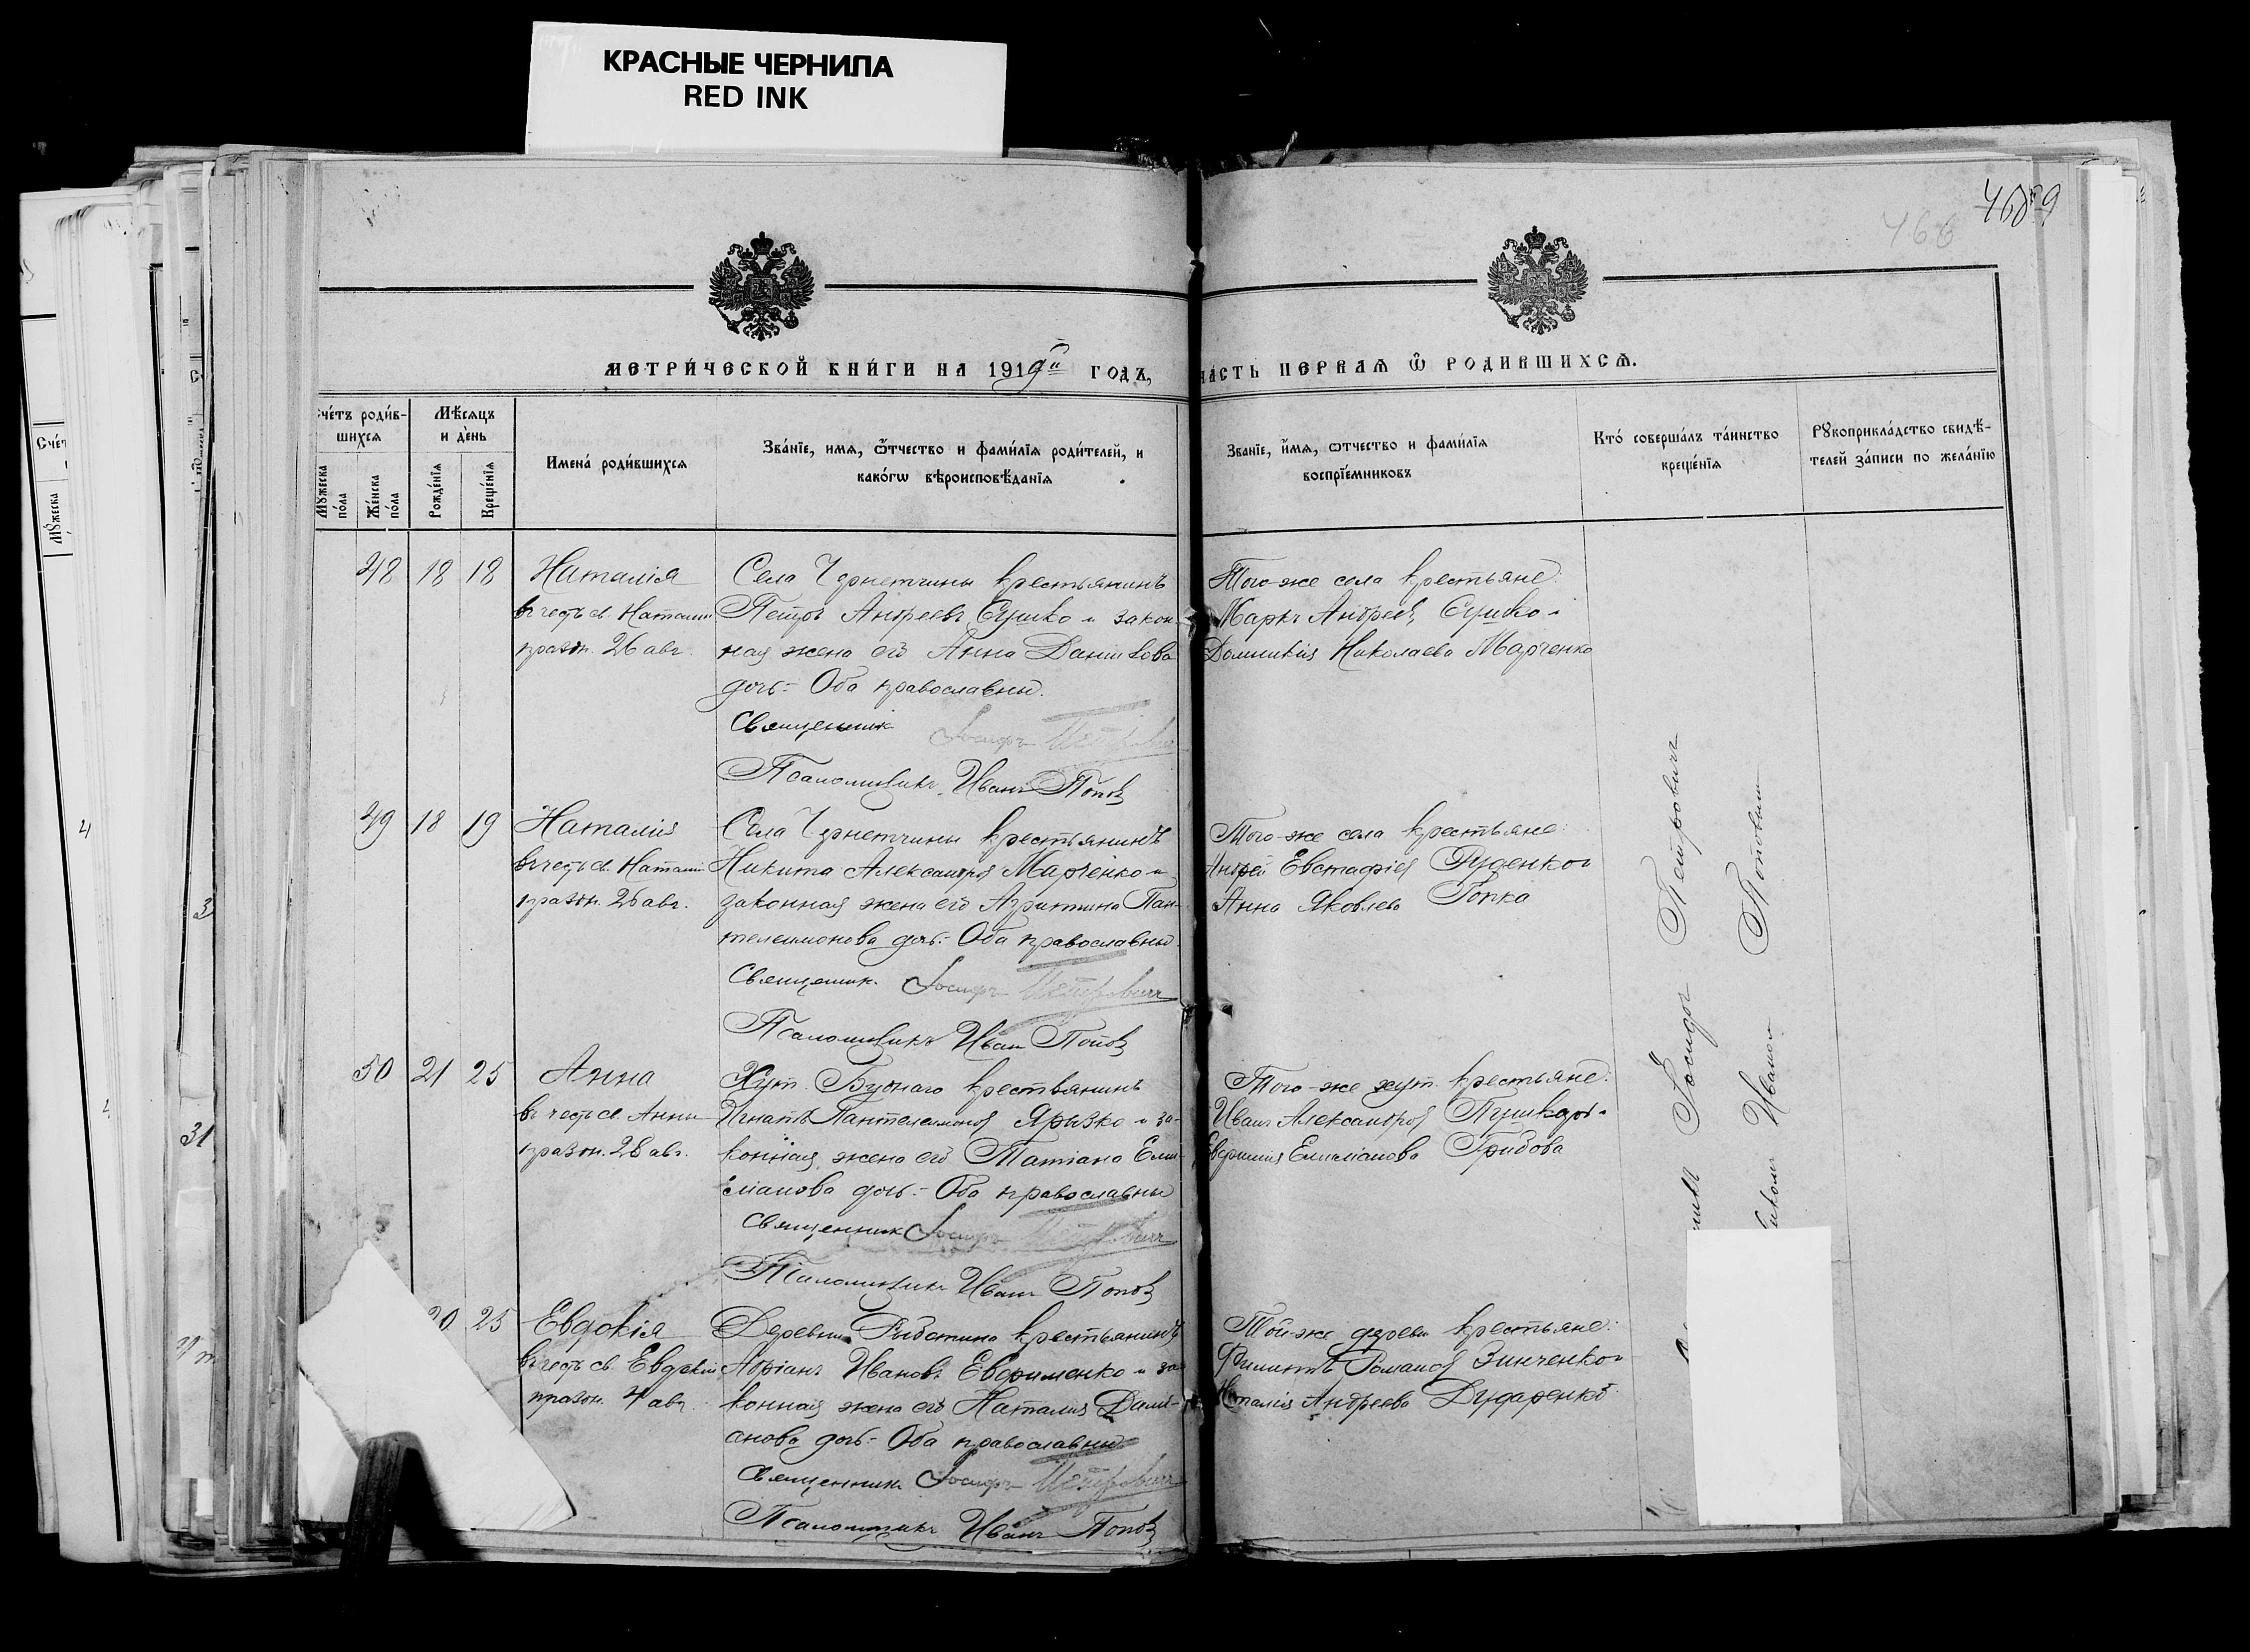 КРАСНЫЕ ЧЕРНИЛА
RED INK
466
МЕТРИ́ЧЕСКОЙ КНИ́ГИ НА 1919й ГОДЪ,
ЧАСТЬ ПЕРВАѦ Ѿ РОДИВШИХСѦ.
Сче́тъ роди́в-
шихсѧ
Мѣ́сѧцъ
и де́нь
Имена́ роди́вшихсѧ
Зва́нїе, имѧ, ѻ҆́тчество и фами́лїѧ роди́телей, и
како́гѡ вѣроисповѣ́данїѧ
Мꙋ́жеска по́ла
Же́нска по́ла
Рожде́нїѧ
Креще́нїѧ
Званїе, и҆́мѧ, ѻтчество и фами́лїѧ
воспрїе́мниковъ
Кто́ соверша́лъ та́инство
креще́нїѧ
Рꙋкоприкла́дство свидѣ́-
телей за́писи по жела́нїю
48 18 18 Наталія
въ честь св. Наталіи
праздн. 26 авг.
Села Чернетчины крестьянинъ
Петръ Андреевъ Сушко и закон-
ная жена его Анна Данилова
дочь.- Оба православны.
Священникъ Іосифъ Петровичъ
Псаломщикъ Иванъ Поповъ
Того-же села крестьяне:
Маркъ Андреевъ Сушко и
Домникія Николаева Марченко
49 18 19 Наталія
въ честь св. Наталіи
праздн. 26 авг.
Села Чернетчины крестьянинъ
Никита Александровъ Марченко и
законная жена его Агриппина Пан-
телеимонова дочь.- Оба православны.
Священникъ Іосифъ Петровичъ
Псаломщикъ Иванъ Поповъ
Того-же села крестьяне:
Андрей Евстафіевъ Руденко и
Анна Яковлева Гопка
50 21 25 Анна
въ честь св. Анны
праздн. 28 авг.
Хут. Буднаго крестьянинъ
Игнатъ Пантелеимоновъ Ярызко и за-
конная жена его Татіана Ели-
сіанова дочь.- Оба православны
Священникъ Іосифъ Петровичъ
Псаломщикъ Иванъ Поповъ
Того-же хут. крестьяне:
Иванъ Александровъ Пушкарь и
Евфимія Емиліанова Грибова
20 25 Евдокія
въ честь св. Евдокіи
праздн. 4 авг.
Деревни Рыботина крестьянинъ
Адріанъ Ивановъ Евфименко и за-
конная жена его Наталія Дамі-
анова дочь.- Оба православны
Священникъ Іосифъ Петровичъ
Псаломщикъ Иванъ Поповъ
Той-же деревни крестьяне:
Филиппъ Романовъ Зинченко и
Наталія Андреева Дударенко
Іосифъ Петровичъ
Иваномъ Поповымъ